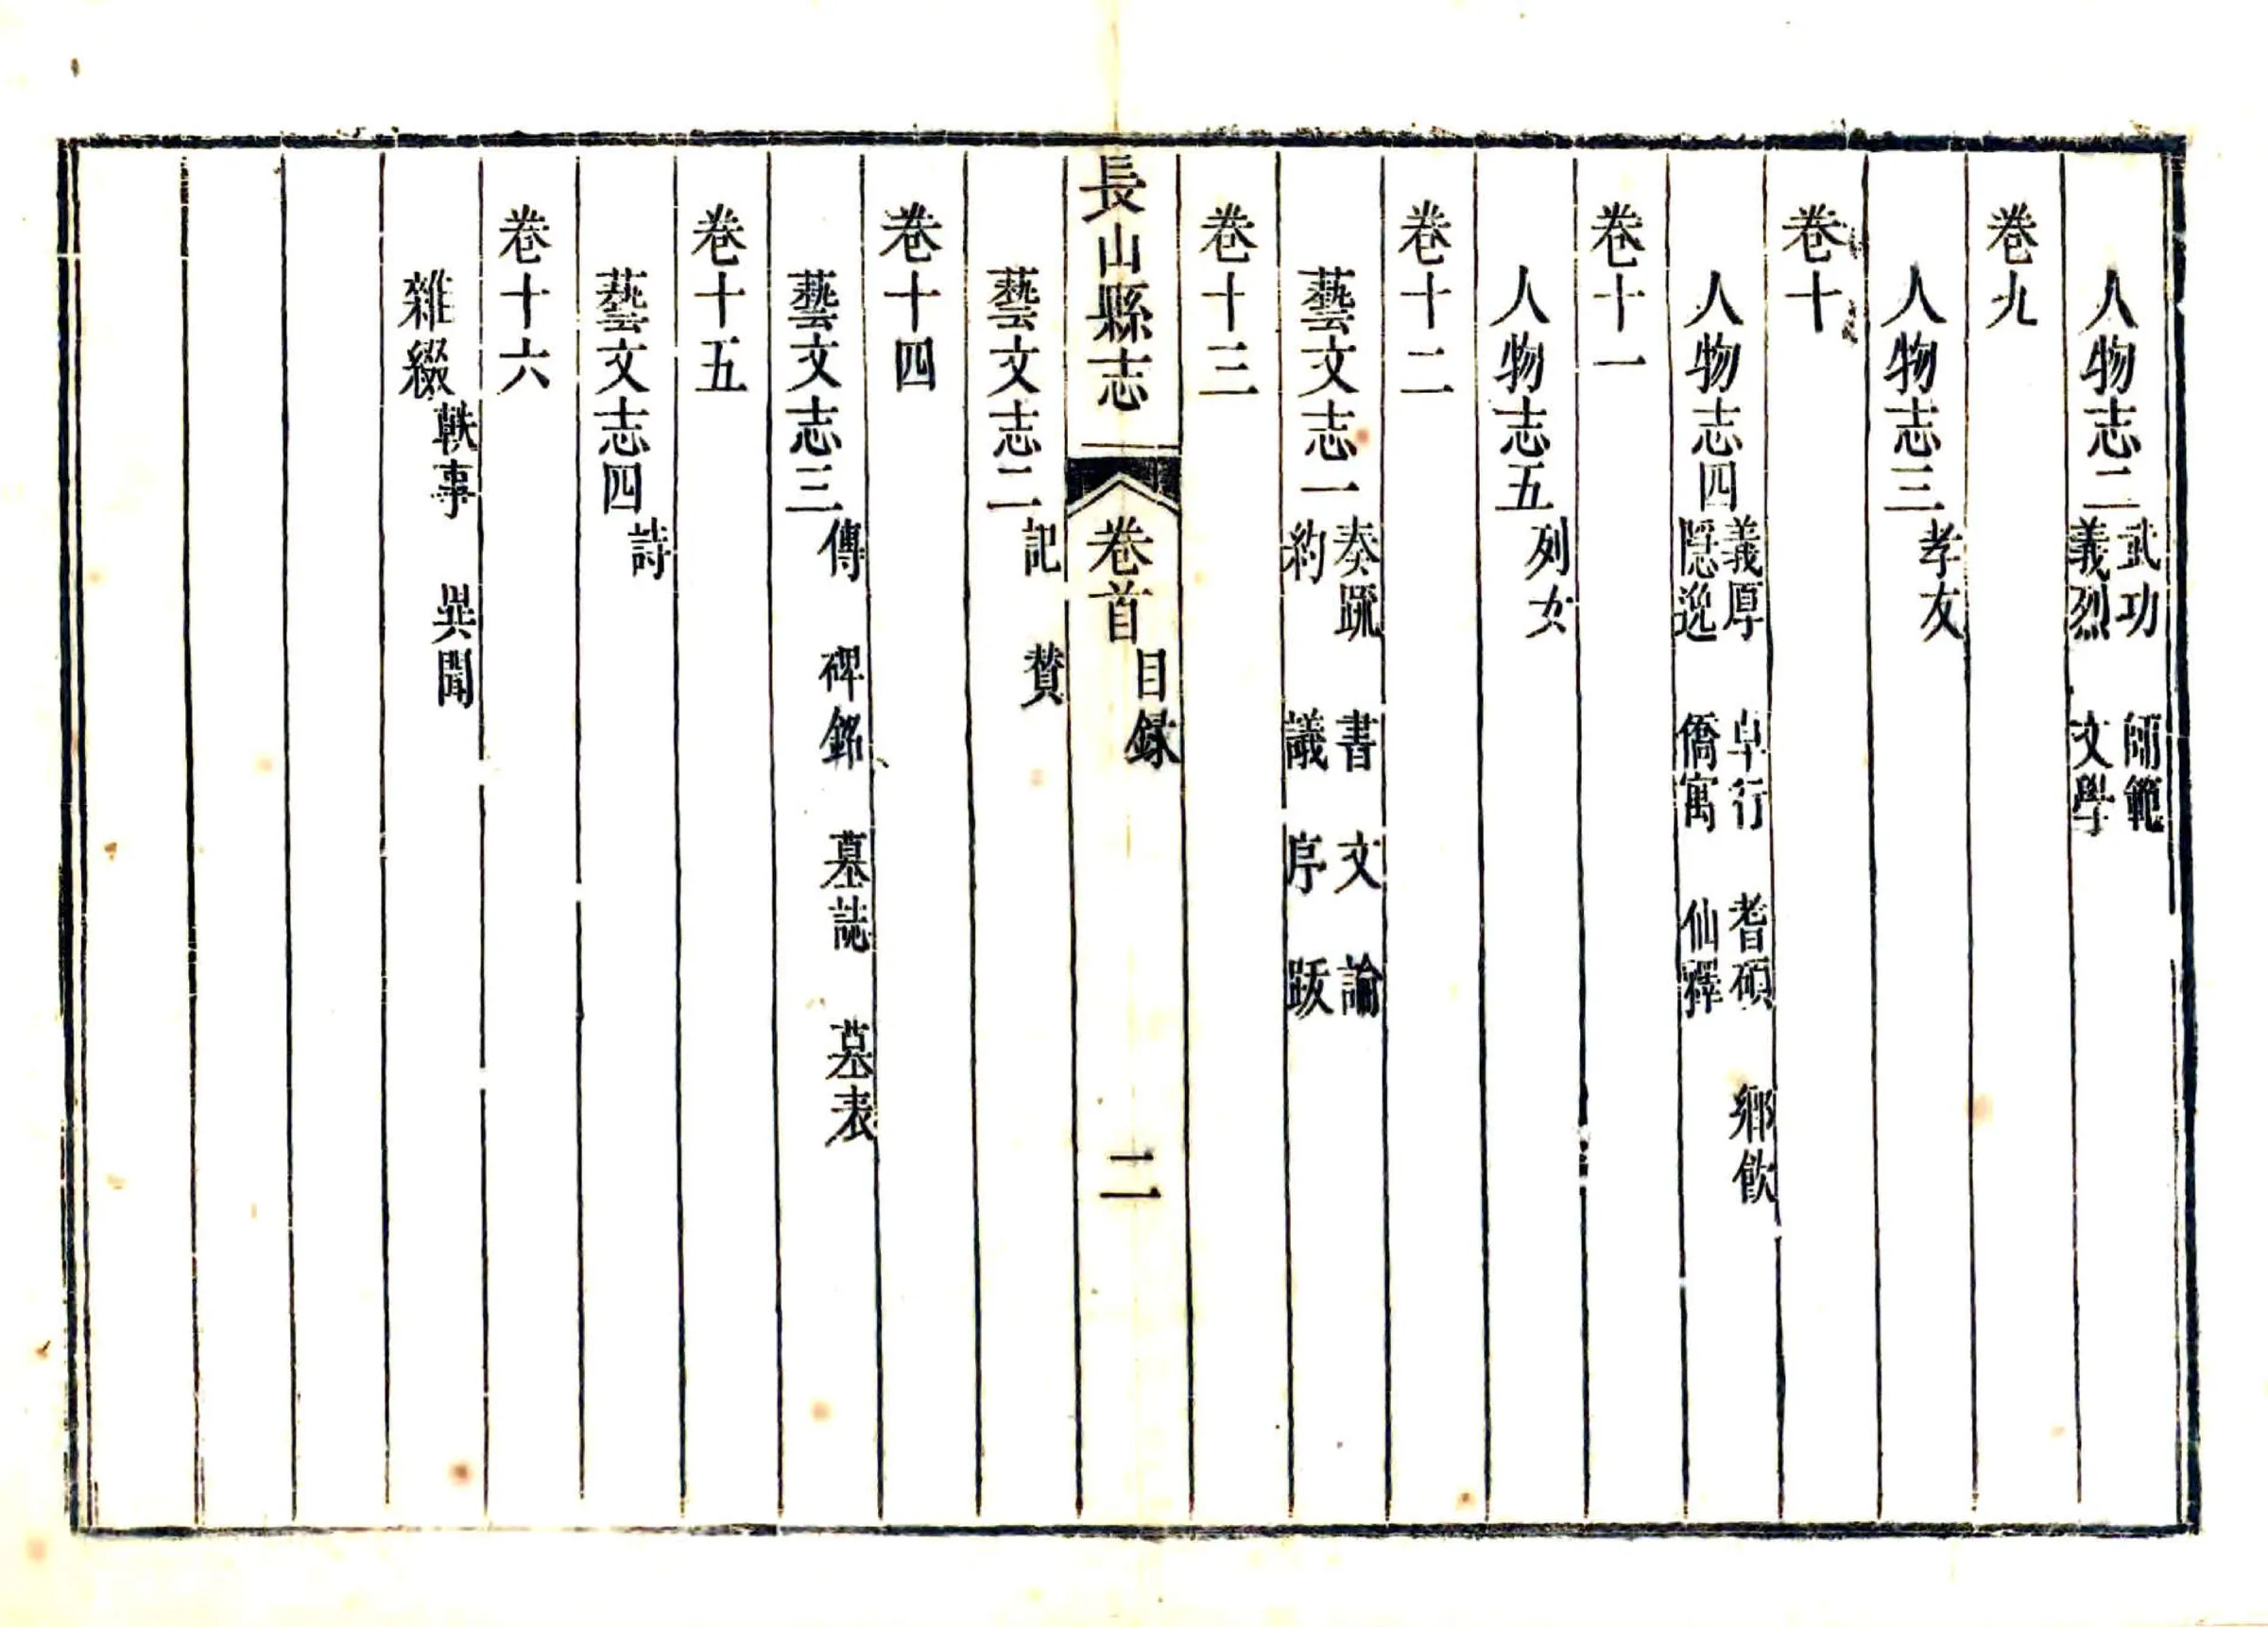 人物志二 武功 師範 義烈 文學
卷九
人物志三 孝友
卷十
人物志四 義厚 卓行 耆碩 鄉飲 隱逸 僑寓 仙釋
卷十一
人物志五 列女
卷十二
藝文志一 奏疏 書 文 論 約 議 序 跋
卷十三
長山縣志 卷首 目錄 二
藝文志二 記 贊
卷十四
藝文志三 傳 碑銘 墓誌 墓表
卷十五
藝文志四 詩
卷十六
雜綴 軼事 異聞